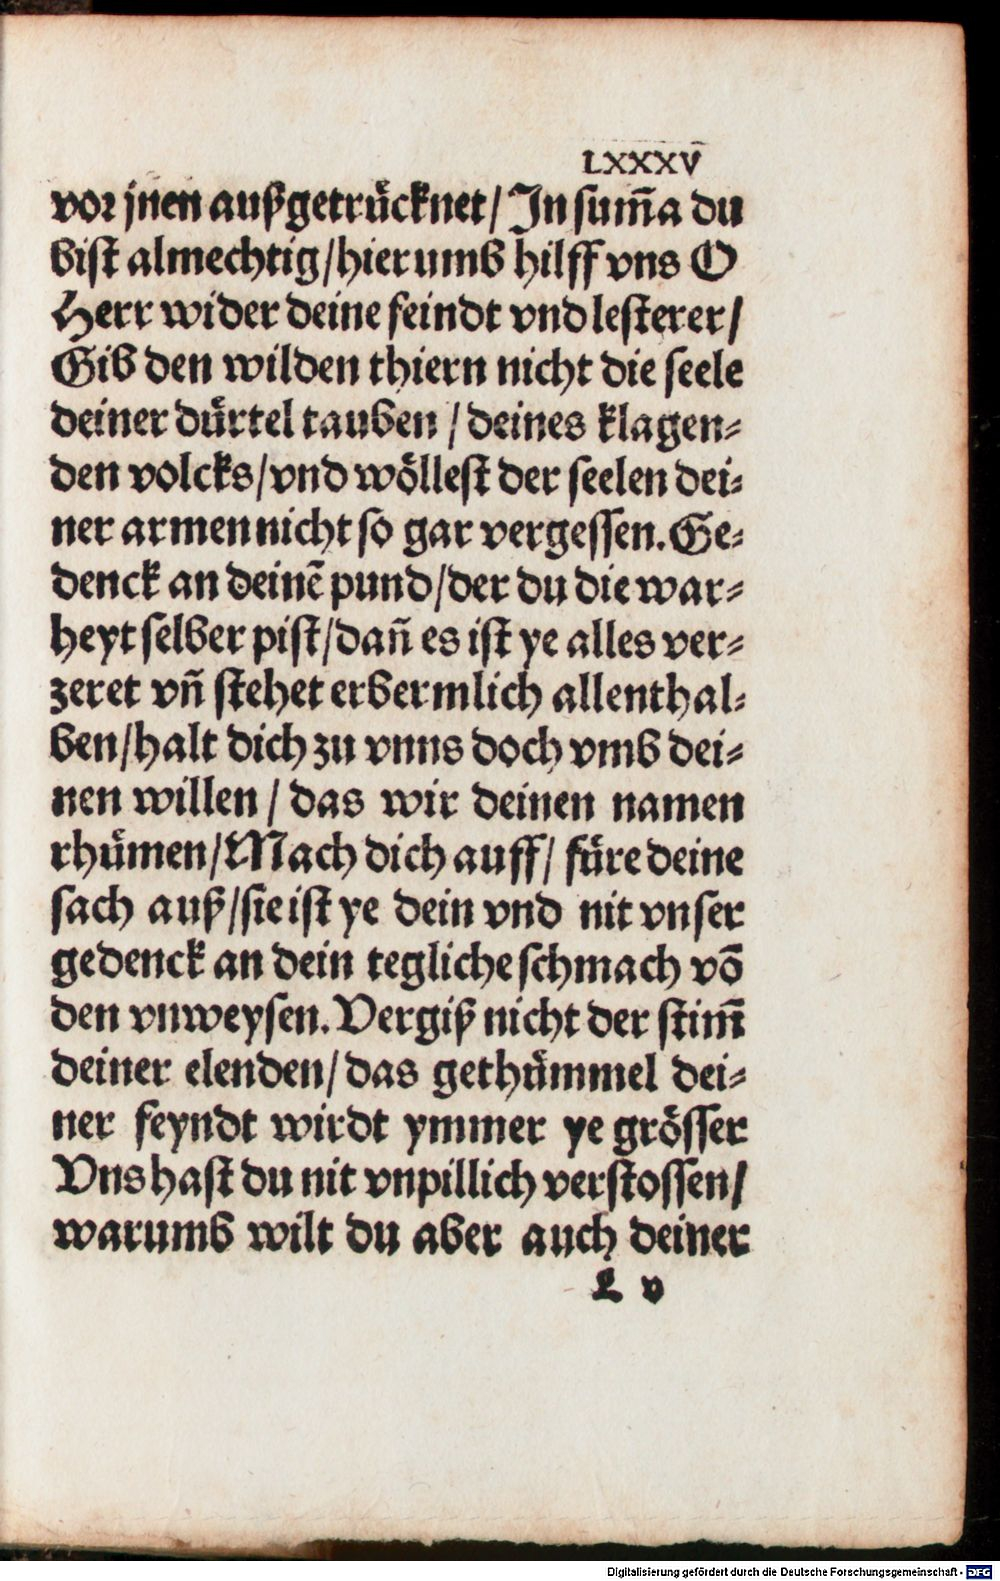 LXXXV
vor jnen außgetrücknet/ In sum̄a du
bist almechtig/hierumb hilff vns O
Herr wider deine feindt vnd lesterer/
Gib den wilden thiern nicht die seele
deiner dürtel tauben / deines klagen⸗
den volcks/vnd wöllest der seelen dei⸗
ner armen nicht so gar vergessen. Ge⸗
denck an deinē pund/der du die war⸗
heyt selber pist/dañ es ist ye alles ver⸗
zeret vñ stehet erbermlich allenthal⸗
ben/halt dich zu vnns doch vmb dei⸗
nen willen / das wir deinen namen
rhümen/Mach dich auff/ füre deine
sach auß/sie ist ye dein vnd nit vnser
gedenck an dein tegliche schmach vō
den vnweysen. Vergiß nicht der stim̄
deiner elenden/das gethümmel dei⸗
ner feyndt wirdt ymmer ye grösser
Vns hast du nit vnpillich verstossen/
warumb wilt du aber auch deiner
L v
Digitalisierung gefördert durch die Deutsche Forschungsgemeinschaft - DFG